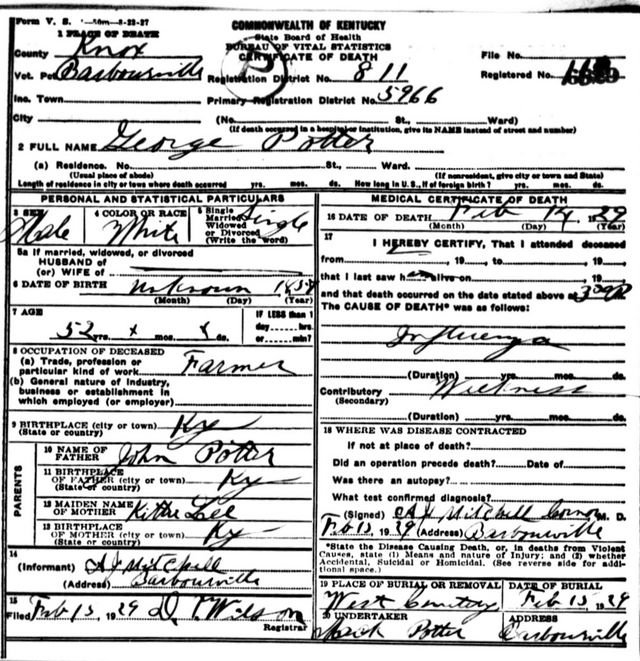 Form V. S. 50m-8-22-27
COMMONWEALTH OF KENTUCKY
State Board of Health
BUREAU OF VITAL STATISTICS
CERTIFICATE OF DEATH
1 PLACE OF DEATH
County Knox
Vot. Barbourville
Inc. Town
City
File No.
Registered No.
Registration District No. 811
Primary Registration District No. 5966
(No. St., Ward)
(If death occurred in a hospital or institution, give its NAME instead of street and number)
2 FULL NAME George Potter
(a) Residence. No. St., Ward.
(Usual place of abode) (If nonresident, give city or town and State)
Length of residence in city or town where death occurred yrs. mos. ds. How long in U. S., if of foreign birth? yrs. mos. ds.
PERSONAL AND STATISTICAL PARTICULARS
3 SEX Male
4 COLOR OR RACE White
5 Single Married Widowed or Divorced (Write the word) Single
5a If married, widowed, or divorced
HUSBAND of
(or) WIFE of
6 DATE OF BIRTH unknown
(Month) (Day) (Year)
7 AGE
52 yrs. x mos. x ds.
IF LESS than 1 day hrs. or min?
8 OCCUPATION OF DECEASED
(a) Trade, profession or particular kind of work Farmer
(b) General nature of industry, business or establishment in which employed (or employer)
9 BIRTHPLACE (city or town) Ky
(State or country)
PARENTS
10 NAME OF FATHER John Potter
11 BIRTHPLACE OF FATHER (city or town) Ky
(State or country)
12 MAIDEN NAME OF MOTHER Kittie Lee
13 BIRTHPLACE OF MOTHER (city or town) Ky
(State or country)
14
(Informant) A J Mitchell
(Address) Barbourville
15
Filed Feb 15, 1929 D. T. Wilson
Registrar
MEDICAL CERTIFICATE OF DEATH
16 DATE OF DEATH Feb 14, 1929
(Month) (Day) (Year)
17
I HEREBY CERTIFY, That I attended deceased
from , 19 , to , 19
that I last saw h alive on , 19
and that death occurred on the date stated above at
The CAUSE OF DEATH* was as follows:
Influenza
(Duration) yrs. mos. ds.
Contributory Weekness
(Secondary)
(Duration) yrs. mos. ds.
18 WHERE WAS DISEASE CONTRACTED
If not at place of death?
Did an operation precede death? Date of
Was there an autopsy?
What test confirmed diagnosis?
(Signed) A J Mitchell Coroner M. D.
Feb 15, 1929 (Address) Barbourville
*State the Disease Causing Death, or, in deaths from Violent
Causes, state (1) Means and nature of Injury; and (2) whether
Accidental, Suicidal or Homicidal. (See reverse side for addi-
tional space.)
19 PLACE OF BURIAL OR REMOVAL
West Cemetery
DATE OF BURIAL
Feb 15 1929
20 UNDERTAKER
Mack Potter
ADDRESS
Barbourville